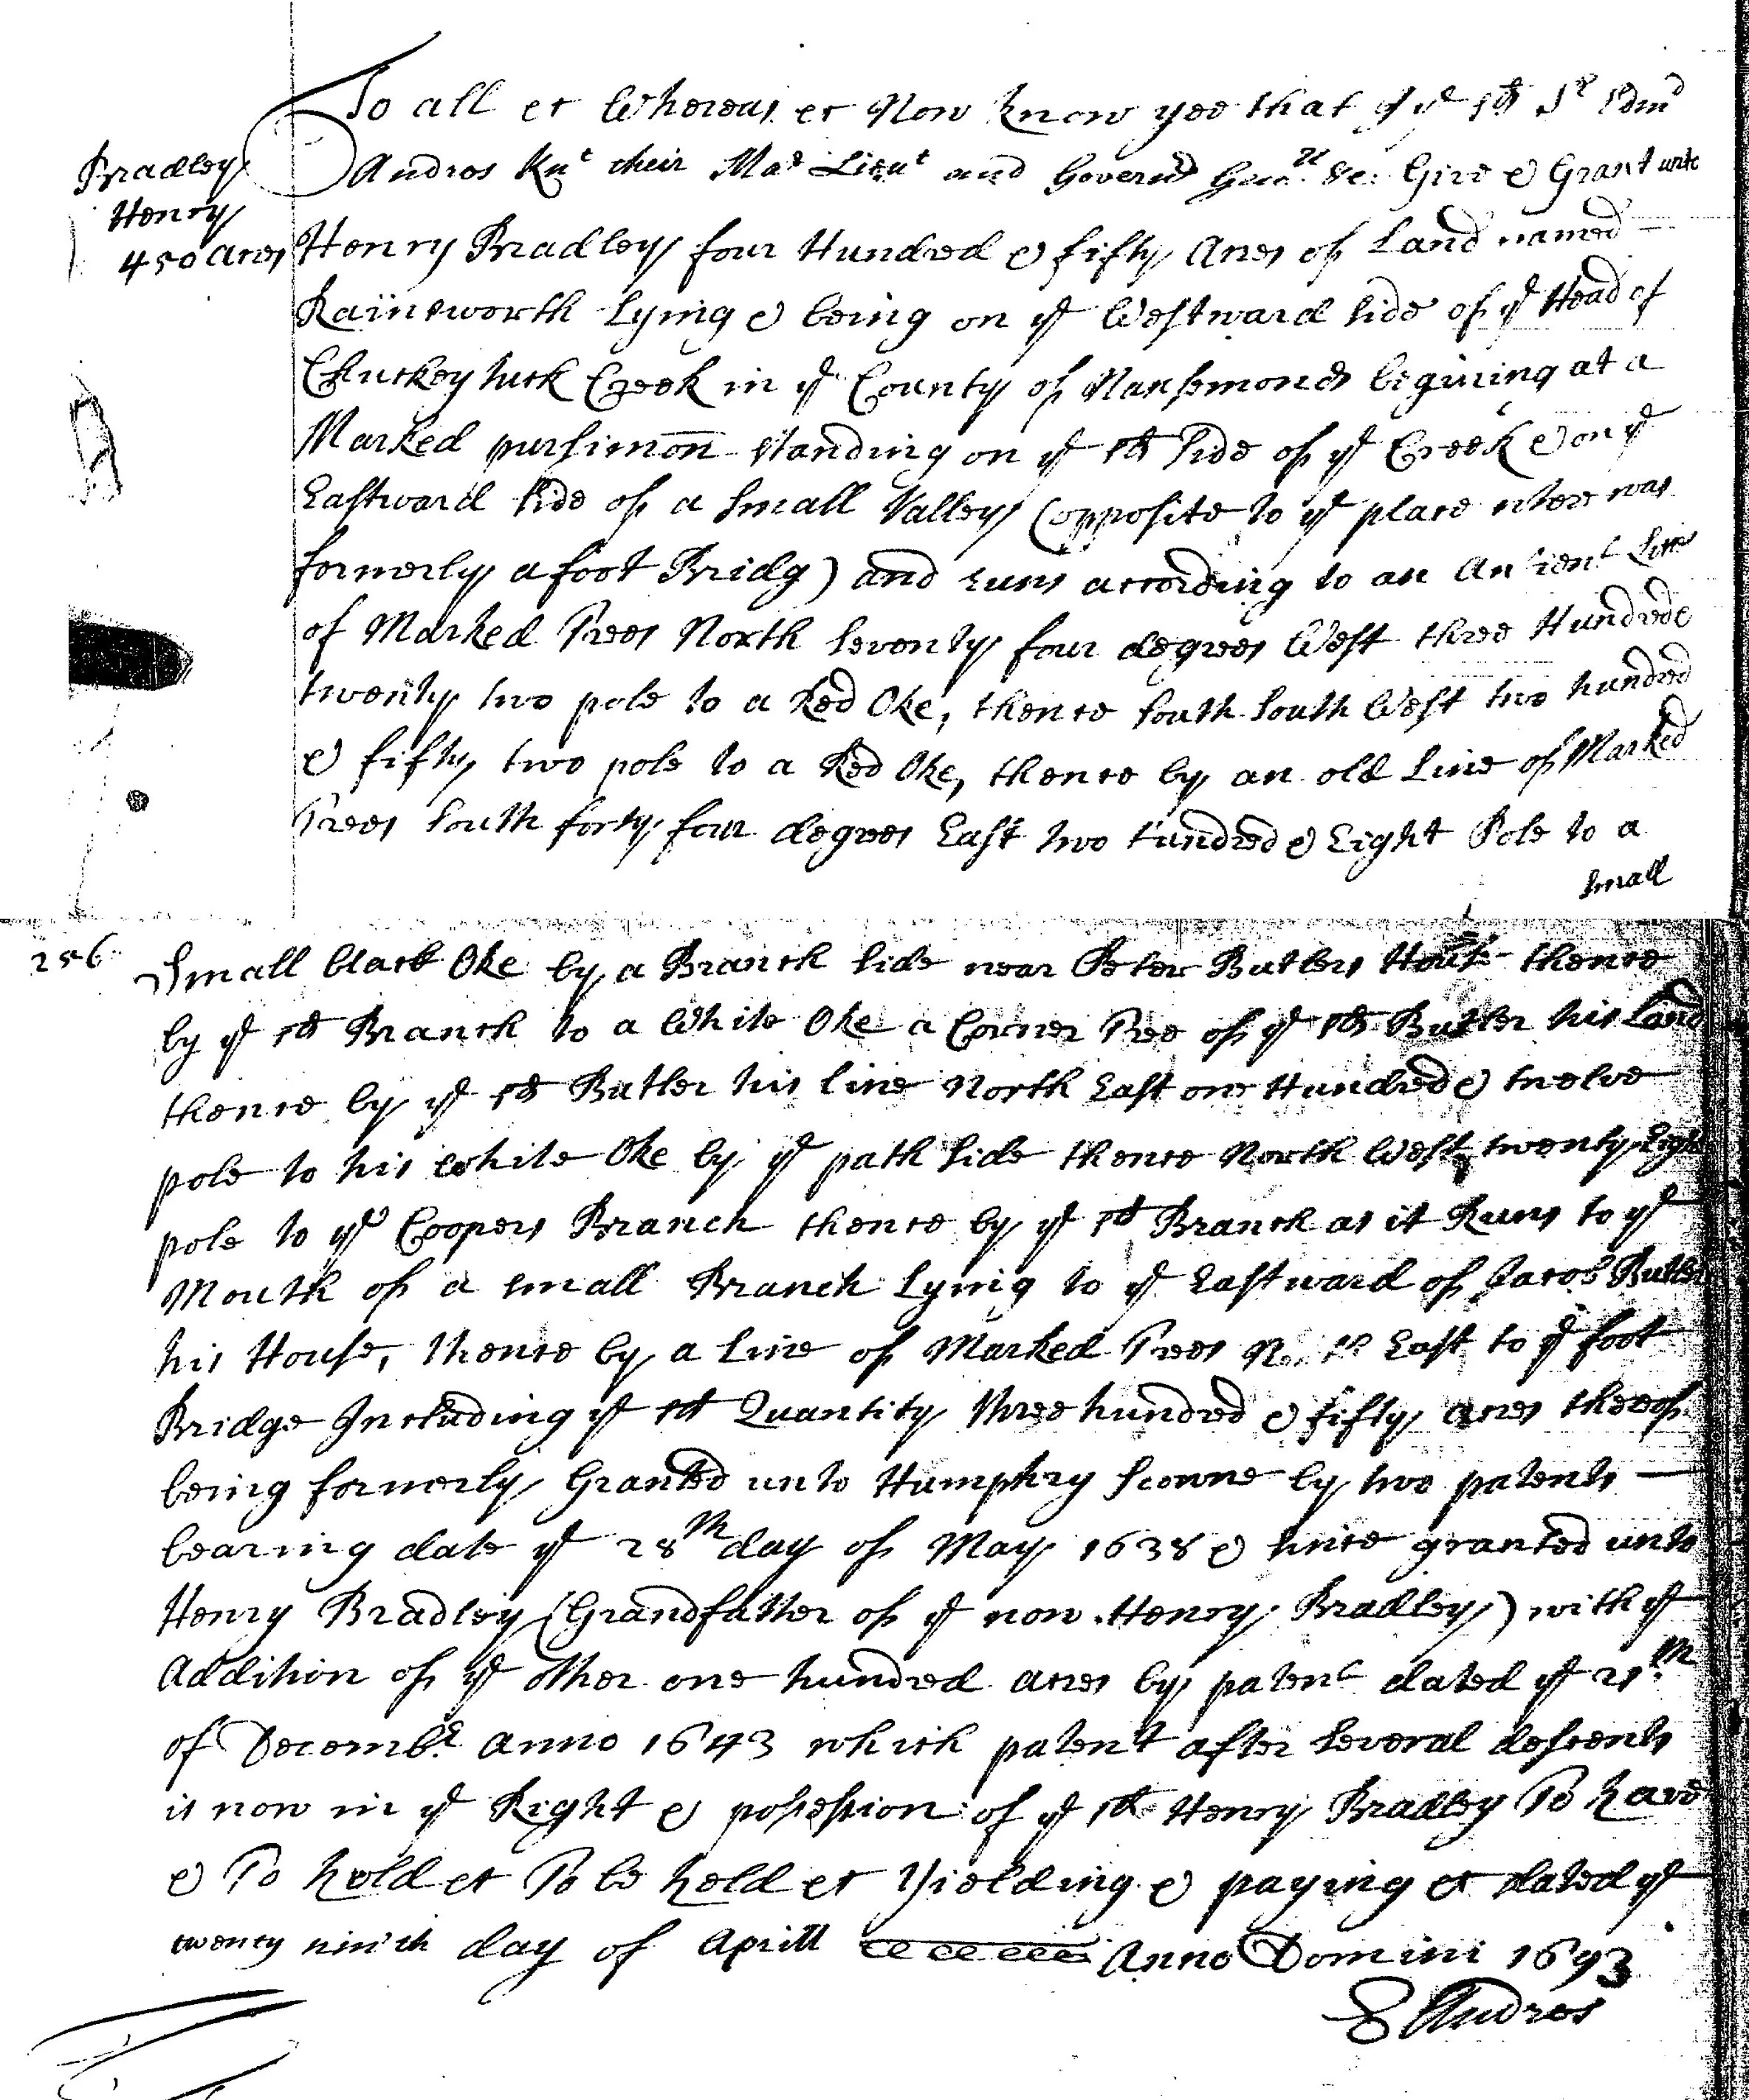 To all et Whereas et Now know yee that I ye sd Sr Edmd
Bradley
Henry
450 acres
Andros Knt their Mats Lieut and Governr Genll &c: Give & Grant unto
Henry Bradley four Hundred & fifty Acres of Land named
Rainsworth Lying & being on ye Westward side of ye Head of
Chuckeytuck Creek in ye County of Nansemond begining at a
Marked pursimon standing on ye sd side of ye Creek & on ye
Eastward side of a small Valley (opposite to ye place where was
formerly a foot Bridg) and runs according to an Antient Line
of Marked Trees North seventy four degrees West three Hundred &
twenty two pole to a Red Oke, thence south south West two hundred
& fifty two pole to a Red Oke, thence by an old Line of Marked
Trees south forty four degrees East two hundred & Eight Pole to a
small
256
Small black Oke by a Branch side near Peter Butlers House thence
by ye sd Branch to a White Oke a Corner Tree of ye sd Butler his Land
thence by ye sd Butler his line North East one Hundred & twelve
pole to his white Oke by ye path side thence North West twenty Eight
pole to ye Coopers Branch thence by ye sd Branch as it Runs to ye
Mouth of a small Branch Lying to ye Eastward of Jacob Butler
his House, thence by a Line of Marked Trees North East to ye foot
Bridge Including ye sd Quantity three hundred & fifty acres thereof
being formerly Granted unto Humphry Scowne by two patents
bearing date ye 28th day of May 1638 & since granted unto
Henry Bradley (Grandfather of ye now Henry Bradley) with ye
Addition of ye other one hundred acres by patent dated ye 21th
of Decembr anno 1643 which patent after several descents
is now in ye Right & possession of ye sd Henry Bradley To have
& To hold et To be held et Yielding & paying et dated ye
twenty ninth day of Aprill Anno Domini 1693
E Andros